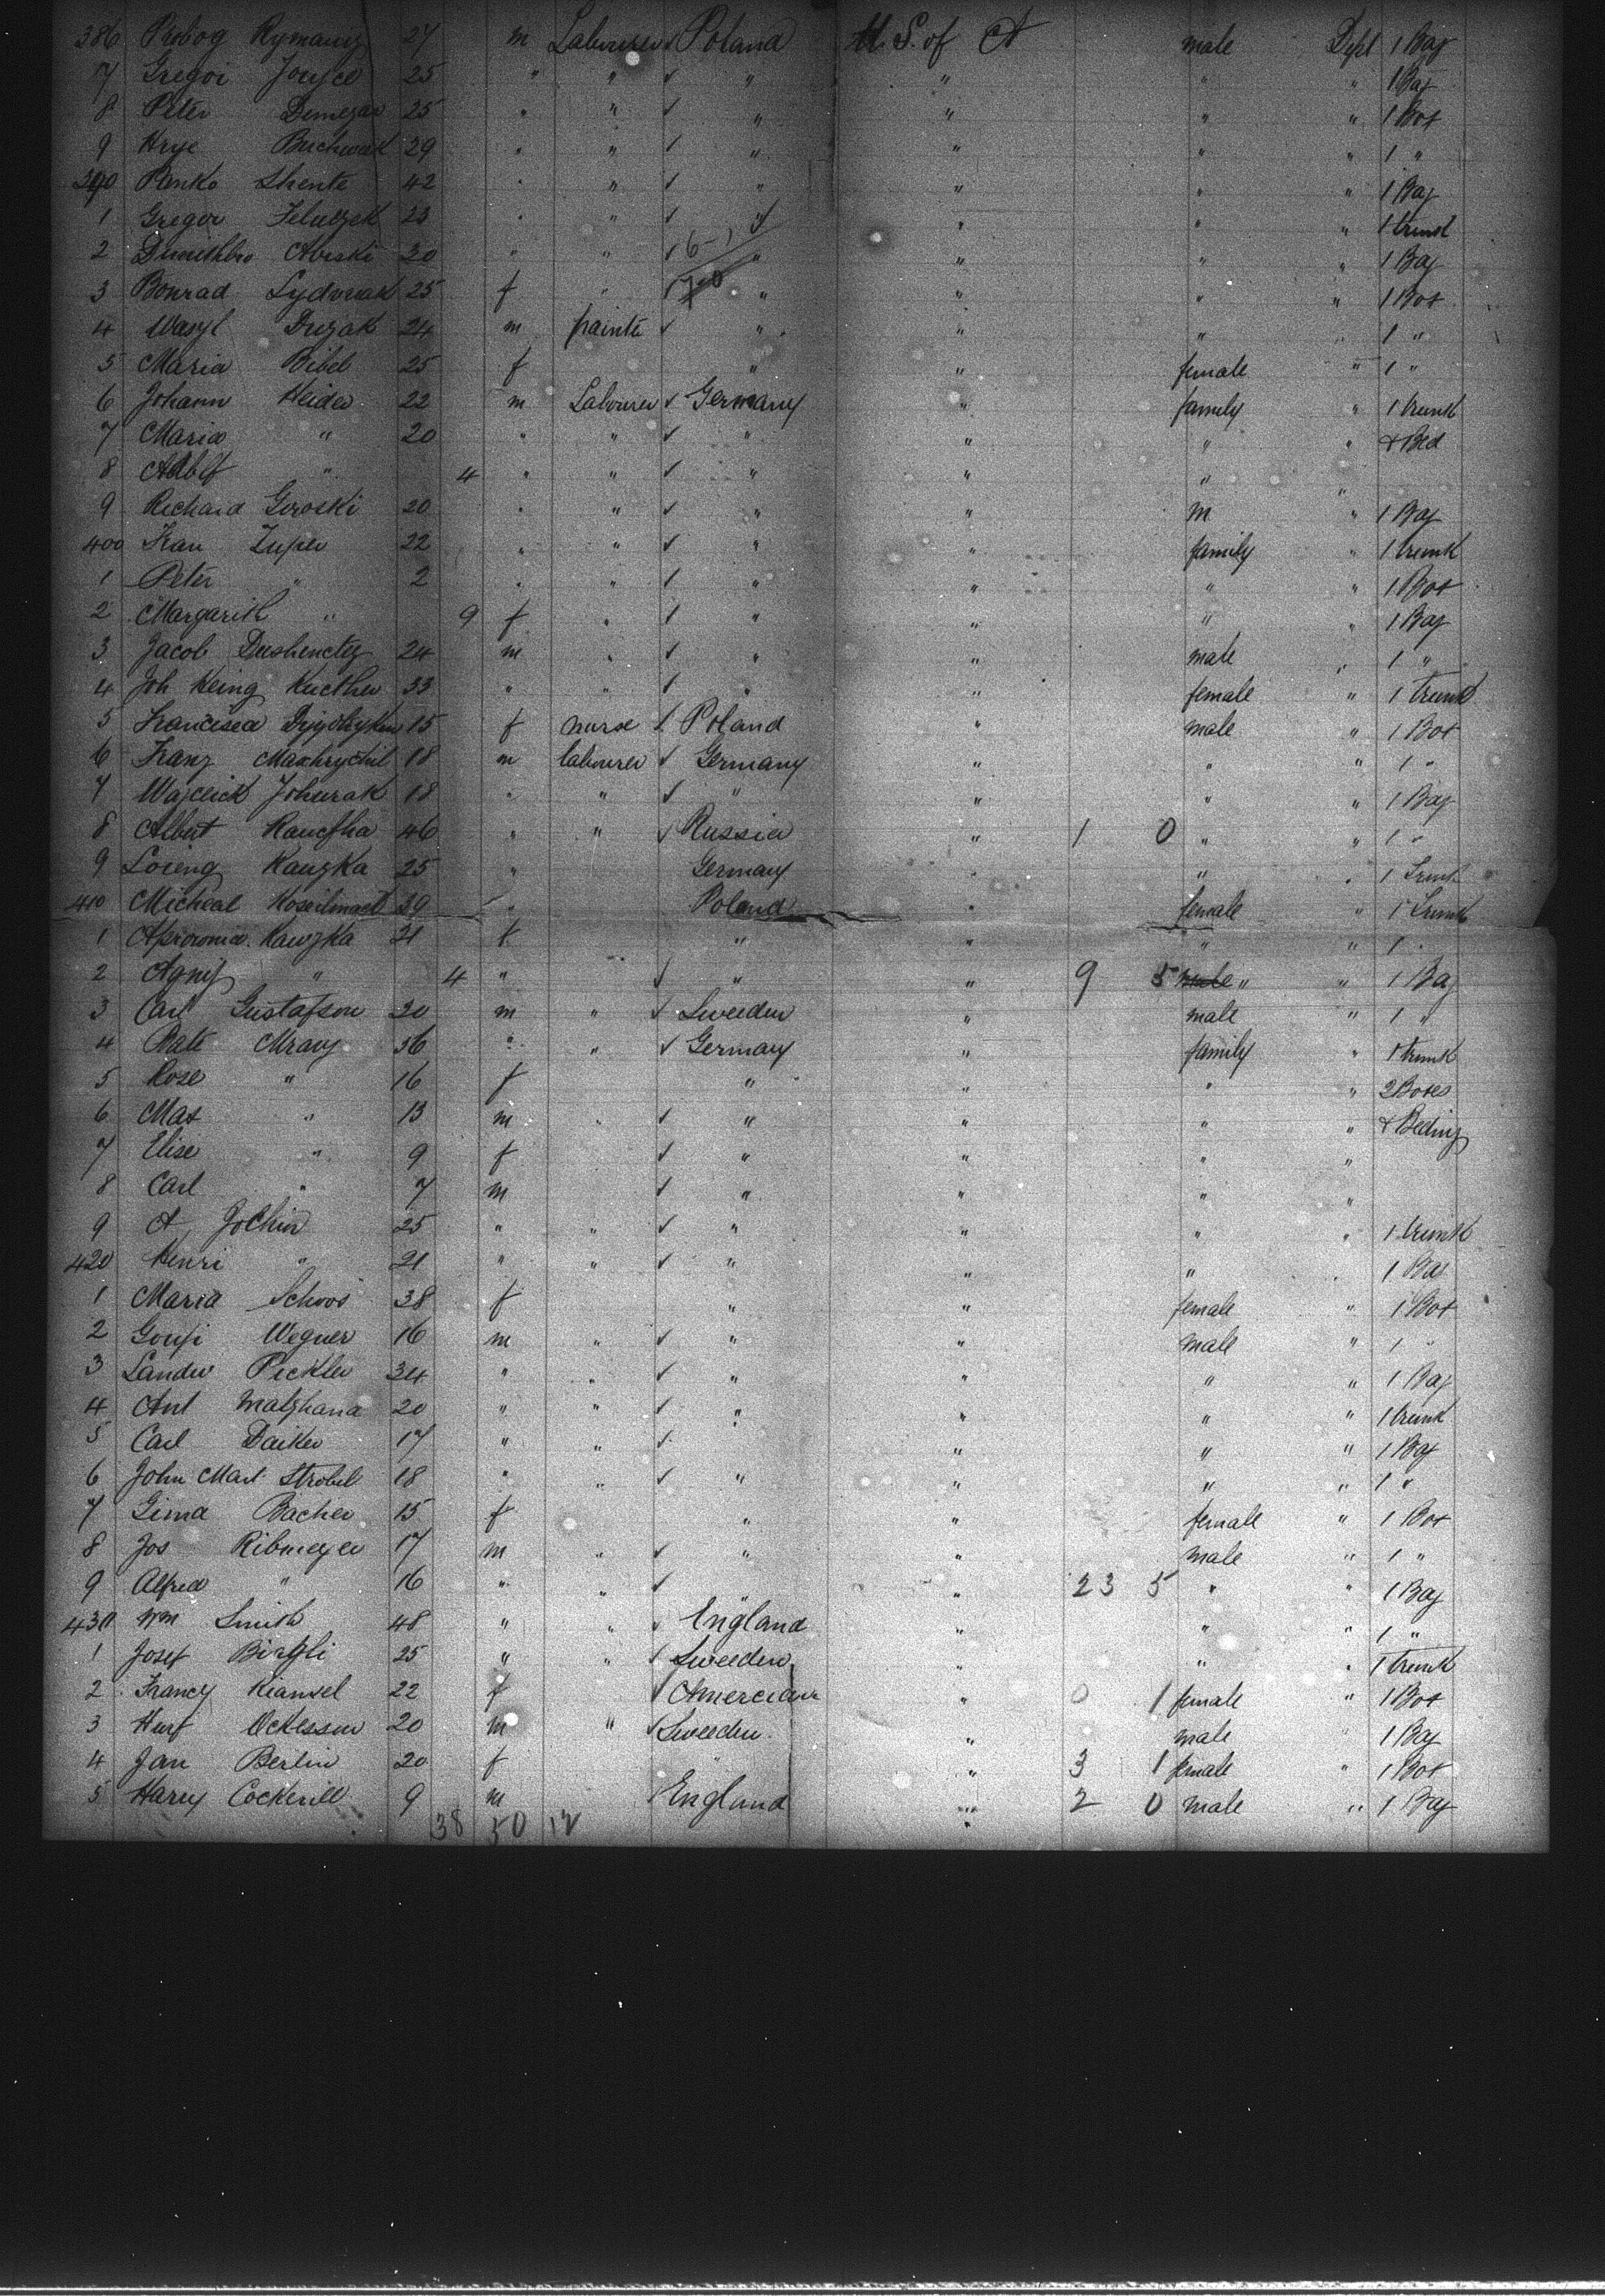 386 Probog Rymaniz 27 m Labourer ✓ Poland U. S. of A male Dept 1 Bag
7 Gregoi Joujce 25 " " ✓ " " " " 1 Bag
8 Peter Dimezar 25 " " ✓ " " " " 1 Box
9 Hrye Buchwak 29 " " ✓ " " " " 1 "
390 Panko Shente 42 " " ✓ " " " " 1 Bag
1 Gregor 23 " " ✓ " " " " 1 trunk
2 Abrski 30 " " ✓ 6-1 " " " " 1 Bag
3 Bonrad 25 f " ✓ " " " " 1 Box
4 Wasyl Duzak 24 m painte ✓ " " " " 1 "
5 Maria Bibel 25 f " " female " 1 "
6 Johann Heider 22 m Labourer ✓ Germany " family " 1 trunk
7 Maria " 20 " " ✓ " " " " & Bed
8 Adolf " 4 " " ✓ " " " "
9 Richard Giroski 20 " " ✓ " " m " 1 Bag
400 Fran Zuper 22 " " ✓ " " family " 1 trunk
1 Peter " 2 " " ✓ " " " " 1 Box
2 Margarith " 9 f " ✓ " " " " 1 Bag
3 Jacob Dushenctz 24 m " ✓ " " male " 1 "
4 Joh Heing Kucther 33 " " ✓ " " female " 1 Trunk
5 Francisca 15 f nurse ✓ Poland " male " 1 Box
6 Franz 18 m labourer ✓ Germany " " " 1 "
7 Wajceick Johurak 18 " " ✓ " " " " 1 Bag
8 Albert Kauctha 46 " " ✓ Russia " 1 0 " " 1 "
9 Loreng Kauzka 25 " Germany " " " 1 Trunk
410 Micheal 39 " Poland " female " 1 Trunk
1 Kawzka 21 f " " " " 1 "
2 Agnis " 4 " ✓ " " 9 5 male " " 1 Bag
3 Carl Gustafson 20 m " ✓ Sweeden " male " 1 "
4 Bate Mravy 36 " " ✓ Germany " family " 1 trunk
5 Rose " 16 f " " " " 2 Boxes
6 Max " 13 m " ✓ " " " " & Beding
7 Elise " 9 f ✓ " " " "
8 Carl " 7 m ✓ " " " "
9 A Jochin 25 " " ✓ " " " " 1 trunk
420 Henri " 21 " " ✓ " " " " 1 Ba
1 Maria Schoos 38 f " " female " 1 Box
2 Goufi Wegner 16 m " ✓ " " male " 1 "
3 Lander Pickler 34 " " ✓ " " " " 1 Bag
4 Ant Matzhana 20 " " ✓ " " " " 1 trunk
5 Carl Daiker 17 " " ✓ " " " 1 Bag
6 John Mart Strobel 18 " " ✓ " " " " 1 "
7 Gima Bacher 15 f " " female " 1 Box
8 Jos Ribmeyer 17 m " ✓ " " male " 1 "
9 Alfred " 16 " " ✓ " " 23 5 " " 1 Bag
430 Wm Smith 48 " " ✓ England " " " 1 "
1 Josef 25 " " ✓ Sweeden " " " 1 trunk
2 Francy Kiansel 22 f ✓ Amercian " 0 1 female " 1 Box
3 Ockesson 20 m " ✓ Sweeden " male " 1 Bag
4 Jan Berlin 20 f " " 3 1 female " 1 Box
5 Harry Cockerill 9 m England " 2 0 male " 1 Bag
38 50 12